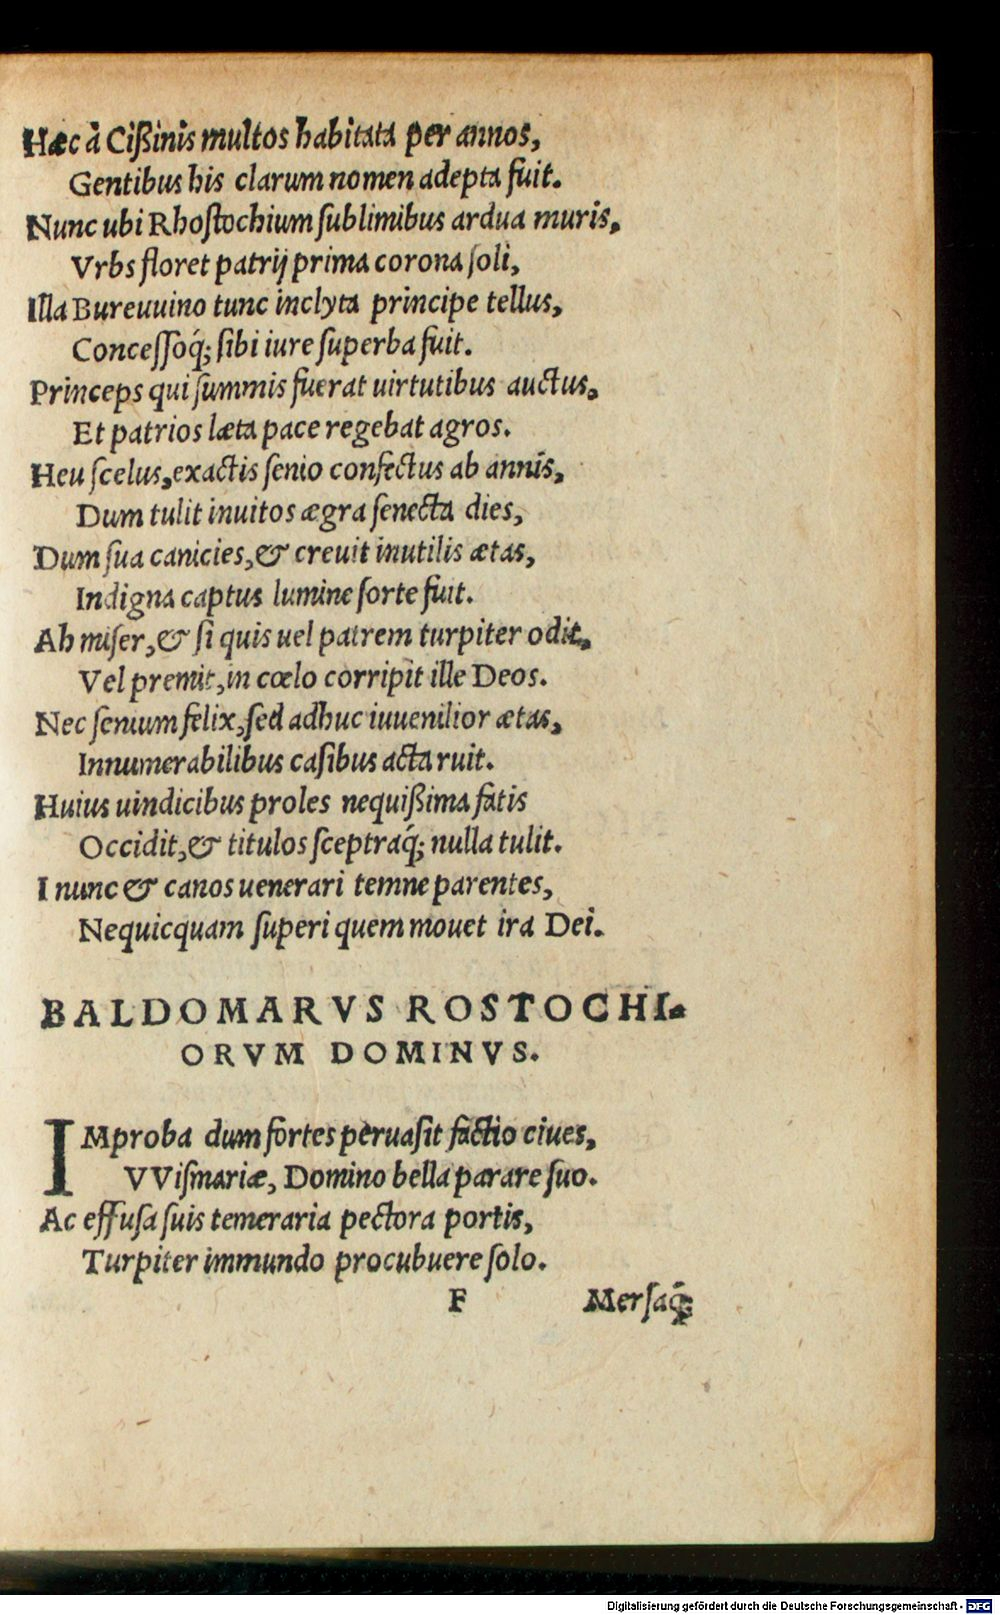 Hæc à Cißinis multos habitata per annos,
Gentibus his clarum nomen adepta fuit.
Nunc ubi Rhoſtochium ſublimibus ardua muris,
Vrbs floret patrij prima corona ſoli,
Illa Bureuuino tunc inclyta principe tellus,
Conceſſoq́; ſibi iure ſuperba fuit.
Princeps qui ſummis fuerat uirtutibus auctus,
Et patrios læta pace regebat agros.
Heu ſcelus, exactis ſenio confectus ab annis,
Dum tulit inuitos ægra ſenecta dies,
Dum ſua canicies, & creuit inutilis ætas,
Indigna captus lumine ſorte fuit.
Ah miſer, & ſi quis uel patrem turpiter odit,
Vel premit, in cœlo corripit ille Deos.
Nec ſenium felix, ſed adhuc iuuenilior ætas,
Innumerabilibus caſibus acta ruit.
Huius uindicibus proles nequißima fatis
Occidit, & titulos ſceptraq́; nulla tulit.
I nunc & canos uenerari temne parentes,
Nequicquam ſuperi quem mouet ira Dei.
BALDOMARVS ROSTOCHI-
ORVM DOMINVS.
IMproba dum fortes peruaſit factio ciues,
VViſmariæ, Domino bella parare ſuo.
Ac effuſa ſuis temeraria pectora portis,
Turpiter immundo procubuere ſolo.
F Merſaq́;
Digitalisierung gefördert durch die Deutsche Forschungsgemeinschaft - DFG